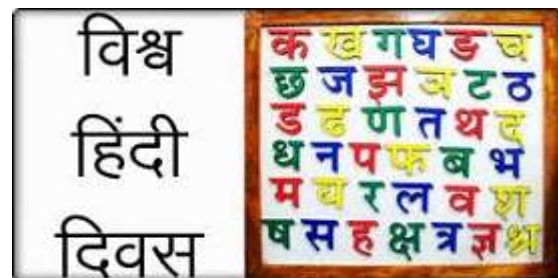 विश्व
हिंदी
दिवस
क ख ग घ ङ च
छ ज झ ञ ट ठ
ड ढ ण त थ द
ध न प फ ब भ
म य र ल व श
ष स ह क्ष त्र ज्ञ श्र